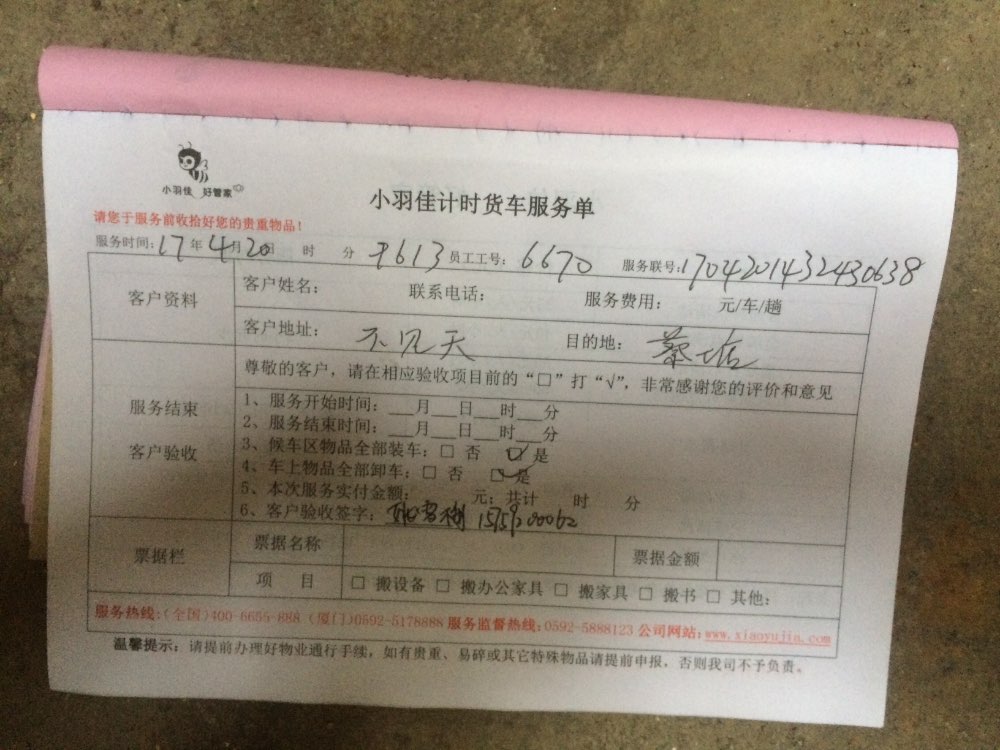 小羽佳 好管家
小羽佳计时货车服务单
请您于服务前收拾好您的贵重物品!
服务时间:17年4月20日 时 分 9613 员工工号: 6670 服务联号:1704201432430638
客户资料
客户姓名: 联系电话: 服务费用: 元/车/趟
客户地址: 不见天 目的地: 蔡塘
服务结束
客户验收
尊敬的客户，请在相应验收项目前的“□”打“√”，非常感谢您的评价和意见
1、服务开始时间: __月__日__时__分
2、服务结束时间: __月__日__时__分
3、候车区物品全部装车: □ 否 ☑ 是
4、车上物品全部卸车: □ 否 ☑ 是
5、本次服务实付金额: 元; 共计 时 分
6、客户验收签字: 15759200062
票据栏
票据名称 票据金额
项 目 □ 搬设备 □ 搬办公家具 □ 搬家具 □ 搬书 □ 其他:
服务热线:(全国)400-6655-888 (厦门)0592-5178888 服务监督热线:0592-5888123 公司网站:www.xiaoyujia.com
温馨提示: 请提前办理好物业通行手续，如有贵重、易碎或其它特殊物品请提前申报，否则我司不予负责。